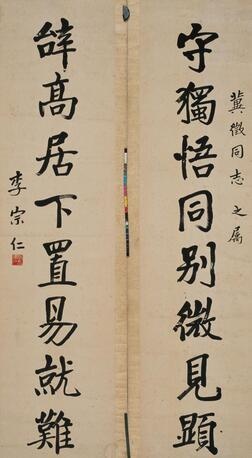 冀徵同志之屬
守獨悟同别微見顯
辭高居下置易就難
李宗仁